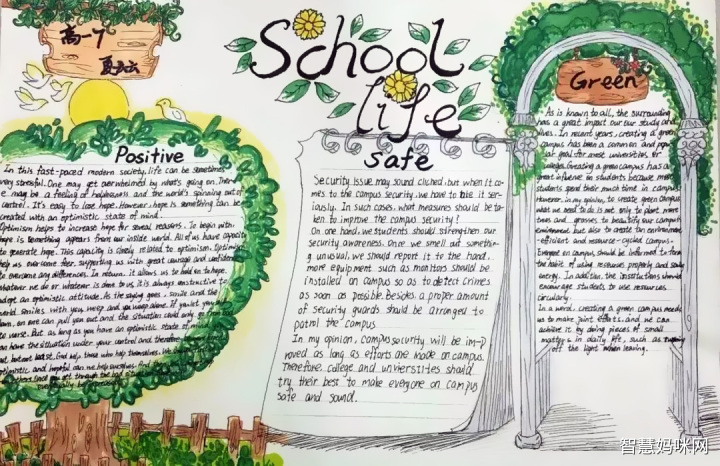 高一7
School
life
Positive
In this fast-paced modern society, life can be sometimes
very stressful. One may get overwhelmed by what's going on. There
may be a feeling of helplessness and the world's spinning out of
control. It's easy to lose hope. However hope is something can be
created with an optimistic state of mind.
Optimism helps to increase hope for several reasons. To begin with
hope is something appears from our inside world. All of us have capacity
to generate hope. This capacity is closely related to optimism. Optimism
help us overcome their, supporting us with great courage and confidence
to overcome any differences. In return, it allows us to hold on to hope.
whatever we do or whatever is done to us, it is always constructive to
adopt an optimistic attitude. As the saying goes, smile and the
world smiles with you, weep and you weep alone. If you let you
down, no one can pull you out and the situation could only go from
to worse. But as long as you have an optimistic state of mind
can have the situation under your control and therefore
safe
Security issue may sound cliched, but when it co-
mes to the campus security, we have to take it ser-
iously. In such cases, what measures should be ta-
ken to improve the campus security?
On one hand, we students should strengthen our
security awareness. Once we smell out somethin-
g unusual, we should report it to the hand,
more equipment such as monitors should be
installed on campus so as to detect crimes
as soon as possible. Besides, a proper amount
of security guards should be arranged to
patrol the campus
In my opinion, campus security will be im-p
roved as long as efforts are made on campus.
Therefore, college and universities should
try their best to make everyone on campus
safe and sound.
Green
As is known to all, the surrounding
has a great impact our our study and
lives. In recent years, creating a green
campus has been a common and popu-
lar goal for most universities
Creating a green campus has a
great influence on students because most
students spend their much time in campus.
However, in my opinion, to create green campus
what we need to do is not only to plant more
trees and grasses to beautify our campus
environment but also to create an environment
-efficient and resource-cycled campus.
Everyone on campus should be informed to form
the habit of using resources properly and save
energy. In addition, the institutions should
encourage students to use resources
circularly.
In a word, creating a green campus needs
us to make joint efforts, and we can
achieve it by doing pieces of small
matters in daily life, such as turning
off the light when leaving.
智慧妈咪网